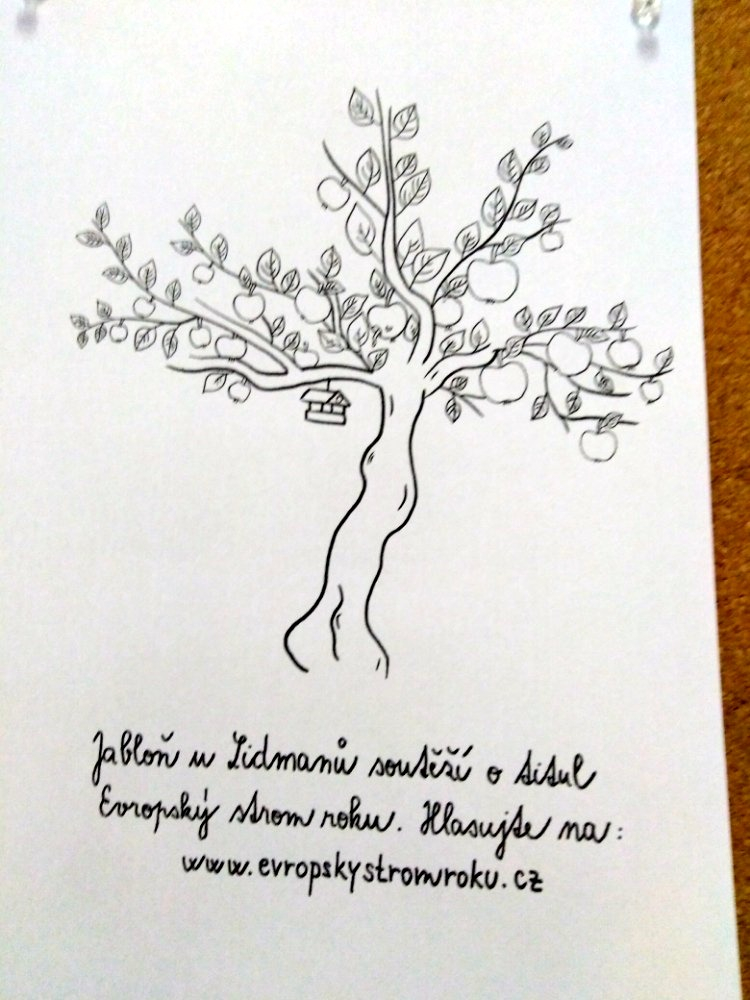 Jabloň u Lidmanů soutěží o titul
Evropský strom roku. Hlasujte na:
www.evropskystromroku.cz